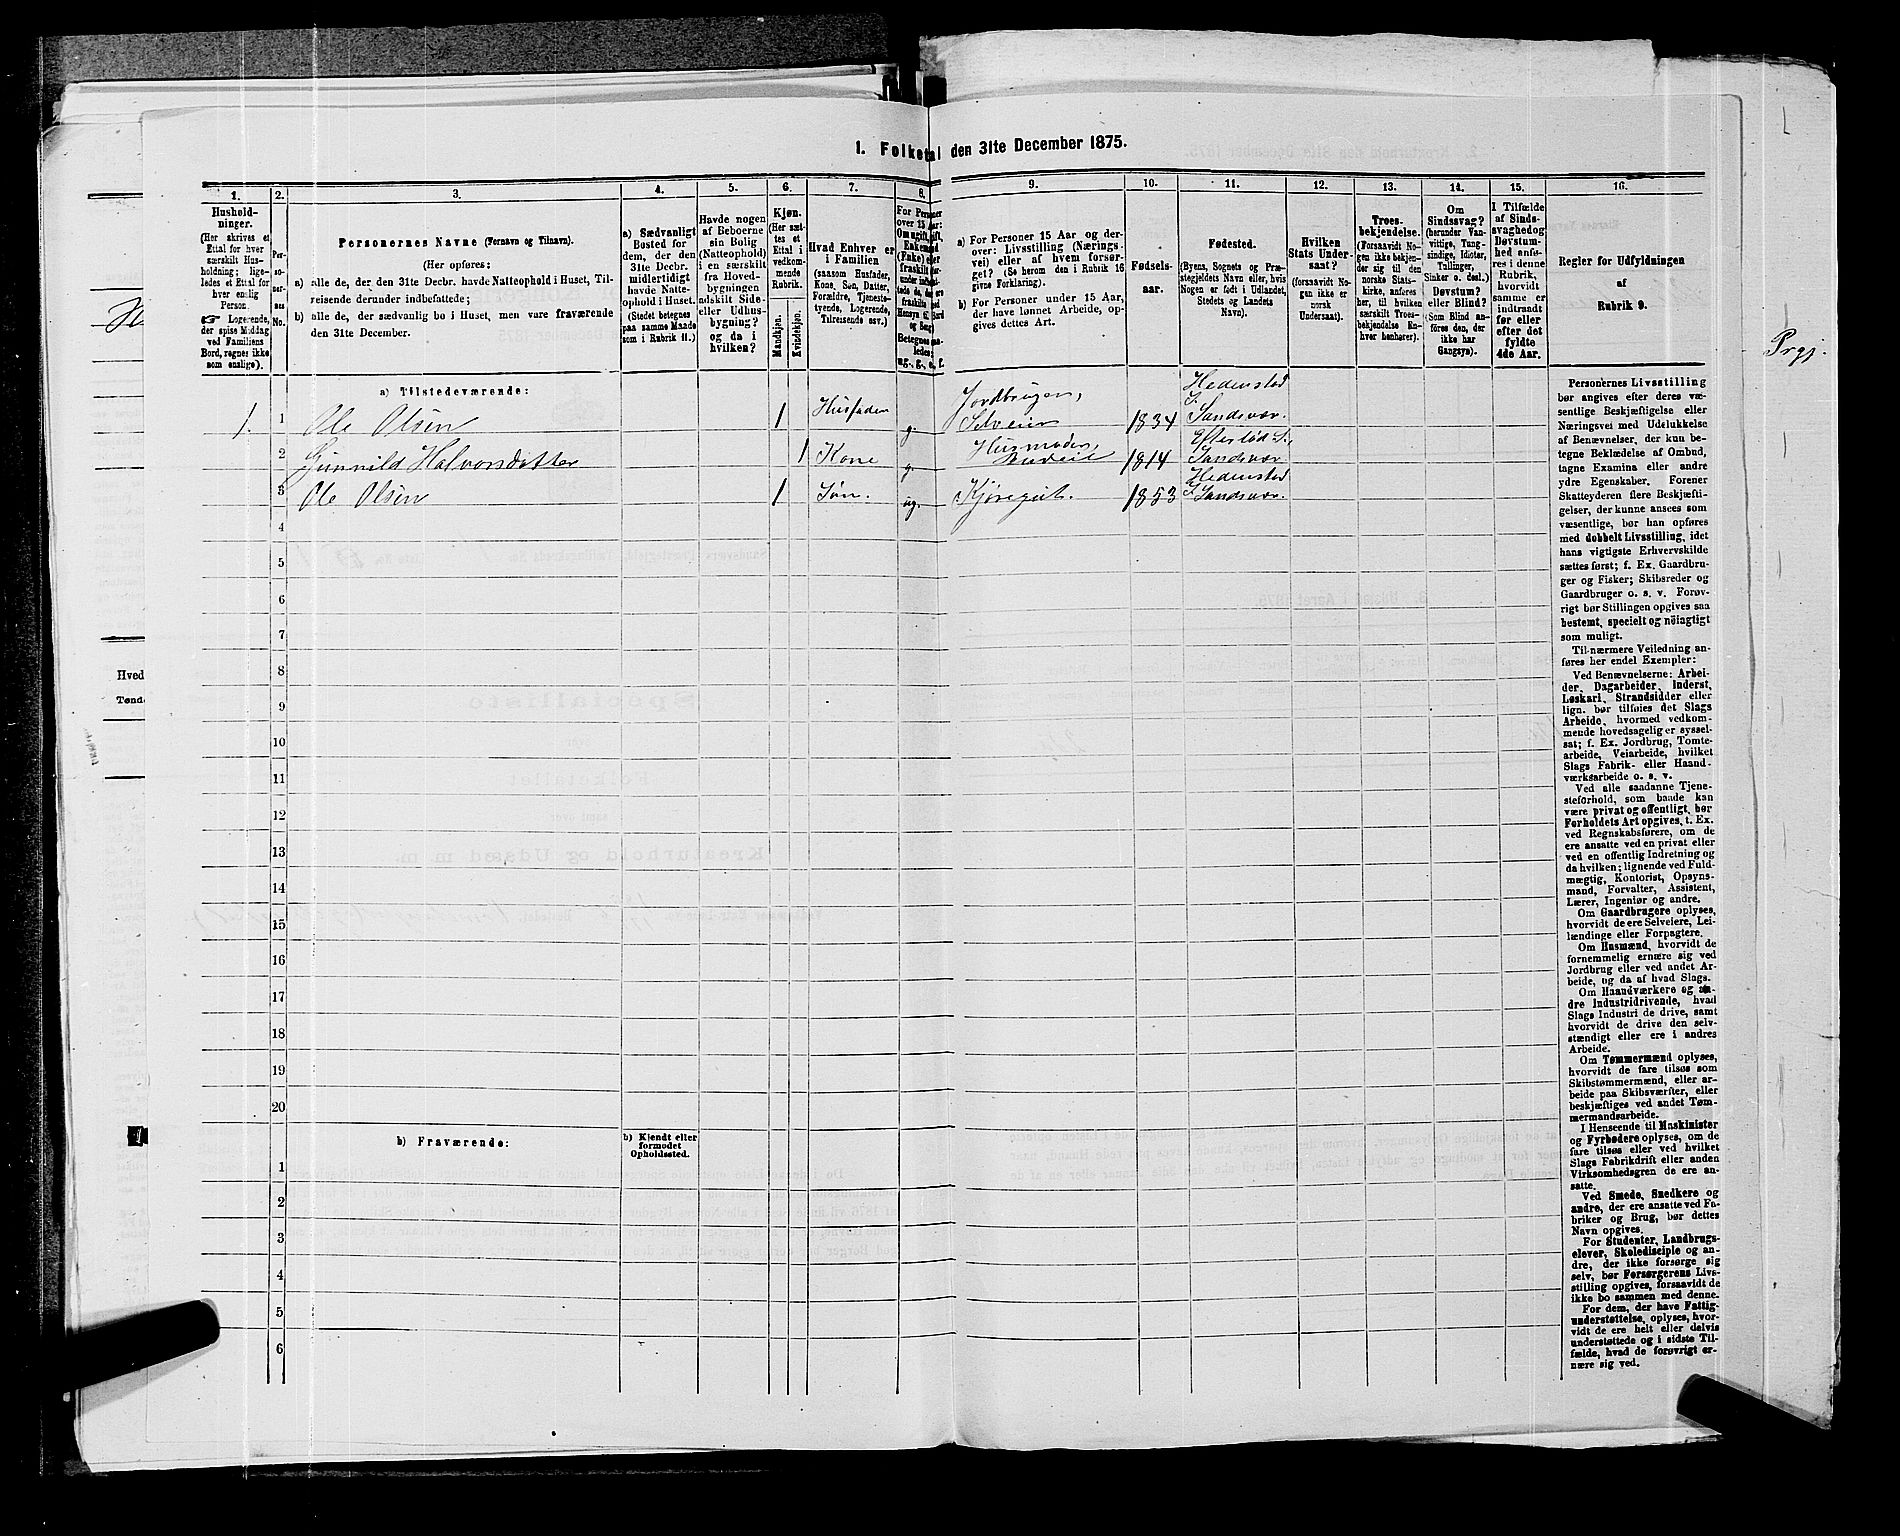 1. Folketal den 31te December 1875.
1.
2.
3.
4.
5.
6.
7.
8.
9.
10.
11.
12.
13.
14.
15.
16.
Hushold-
ninger.
(Her skrives et
Ettal for hver
særskilt Hus-
holdning; lige-
ledes et Ettal for
hver enslig
Person.
☞ Logerende,
der spise Middag
ved Familiens
Bord, regnes ikke
som enslige).
Per-
so-
ner-
nes
No.
Personernes Navne (Fornavn og Tilnavn).
(Her opføres:
a) alle de, der den 31te Decbr. havde Natteophold i Huset, Til-
reisende derunder indbefattede;
b) alle de, der sædvanlig bo i Huset, men vare fraværende
den 31te December.
a) Sædvanligt
Bosted for
dem, der den
31te Decbr.
midlertidigt
havde Natte-
ophold i Huset.
(Stedet betegnes
paa samme Maade
som i Rubrik 11.)
Havde nogen
af Beboerne
sin Bolig
(Natteophold)
i en særskilt
fra Hoved-
bygningen
adskilt Side-
eller Udhus-
bygning?
og da i
hvilken?
Kjøn.
(Her sæt-
tes et
Ettal i
vedkom-
mende
Rubrik.
Mandkjøn.
Kvindekjøn.
Hvad Enhver er
i Familien
(saasom Husfader,
Kone, Søn, Datter,
Forældre, Tjeneste-
tyende, Logerende,
Tilreisende osv.)
For Personer
over 15 Aar:
Om ugift, gift,
a) For Personer 15 Aar og der-
over: Livsstilling (Nærings-
vei) eller af hvem forsør-
get? (Se herom den i Rubrik 16
givne Forklaring).
b) For Personer under 15 Aar,
der have lønnet Arbeide, op-
gives dettes Art.
Fødsels-
aar.
Fødested.
(Byens, Sognets og Præ-
stegjeldets Navn eller, hvis
Nogen er født i Udlandet,
Stedets og Landets
Navn).
Hvilken
Stats Under-
saat?
(forsaavidt No-
gen ikke er
norsk
Undersaat).
Troes-
bekjendelse.
(Forsaavidt No-
gen ikke bekjen-
der sig til den
norske Stats-
kirke, anføres
her, til hvilken
særskilt Troes-
bekjendelse En-
hver henhører).
Om
Sindssvag?
(herunder Van-
vittige, Tung-
sindige, Idioter,
Tullinger,
Sinker o. desl.)
Døvstum?
eller Blind?
(Som Blind an-
føres den, der
ikke har
Gangsyn).
I Tilfælde
af Sinds-
svaghed og
Døvstum-
hed anfø-
res i denne
Rubrik,
hvorvidt
samme er
indtraadt
før eller
efter det
fyldte
4de Aar.
Regler for Udfyldningen
af
Rubrik 9.
a) Tilstedeværende:
1. 1 Ole Olsen 1 Husfader g. Jordbruger, Selveier 1834 Hedenstad S. Sandsvær.
2 Gunnild Halvorsdatter 1 Kone g. Husmoder, 1814 Eftelød S., Sandsvær
3 Ole Olsen 1 Søn. ug. Kjøregut. 1853 Hedenstad S. Sandsvær.
4
5
6
7
8
9
10
11
12
13
14
15
16
17
18
19
20
b) Fraværende:
b) Kjendt eller
formodet
Opholdssted.
1
2
3
4
5
6
Personernes Livsstilling
bør angives efter deres væ-
sentlige Beskjæftigelse eller
Næringsvei med Udelukkelse
af Benævnelser, der kun be-
tegne Beklædelse af Ombud,
tagne Examina eller andre
ydre Egenskaber. Forener
Skatteyderen flere Beskjæfti-
gelser, der kunne ansees som
væsentlige, bør han opføres
med dobbelt Livsstilling, idet
hans vigtigste Erhvervskilde
sættes først; f. Ex. Gaardbru-
ger og Fisker; Skibsreder og
Gaardbruger o. s. v. Forøv-
rigt bør Stillingen opgives saa
bestemt, specielt og nøiagtigt
som muligt.
Til nærmere Veiledning an-
føres her endel Exempler:
Ved Benævnelserne: Arbei-
der, Dagarbeider, Inderst,
Løskarl, Strandsidder eller
lign. bør tilføies det Slags
Arbeide, hvormed vedkom-
mende hovedsagelig er syssel-
sat; f. Ex. Jordbrug, Tomte-
arbeide, Veiarbeide, hvilket
Slags Fabrik- eller Haand-
værksarbeide o. s. v.
Ved alle saadanne Tjene-
steforhold, som baade kan
være privat og offentligt, bør
Forholdets Art opgives, t. Ex.
ved Regnskabsførere, om de
ere ansatte ved en privat eller
ved en offentlig Indretning og
da hvilken; lignende ved Fuld-
mægtig, Kontorist, Opsyns-
mand, Forvalter, Assistent,
Lærer, Ingeniør og andre.
Om Gaardbrugere oplyses,
hvorvidt de ere Selveiere, Lei-
lændinge eller Forpagtere.
Om Husmænd, hvorvidt de
fornemmelig ernære sig ved
Jordbrug eller ved andet Ar-
beide, og da af hvad Slags.
Om Haandværkere og an-
dre Industridrivende, hvad
Slags Industri de drive, samt
hvorvidt de drive den selv-
stændigt eller ere i andres
Arbeide.
Om Tømmermænd oplyses,
hvorvidt de fare tilsøs som
Skibstømmermænd, eller ar-
beide paa Skibsværfter, eller
beskjæftiges ved andet Tøm-
mermandsarbeide.
I Henseende til Maskinister
og Fyrbødere oplyses, om de
fare tilsøs eller ved hvilket
Slags Fabrikdrift eller anden
Virksomhedsgren de ere an-
satte.
Ved Smede, Snedkere og
andre, der ere ansatte ved Fa-
briker og Brug, bør dettes
Navn opgives.
For Studenter, Landbrugs-
elever, Skoledisciple og an-
dre, der ikke forsørge sig
selv, bør Forsørgerens Livs-
stilling opgives, forsaavidt de
ikke bo sammen med denne.
For dem, der have Fattig-
understøttelse, oplyses, hvor-
vidt de ere helt eller delvis
understøttede og i sidste Til-
fælde, hvad de forøvrigt er-
nære sig ved.
Hved
Tønde